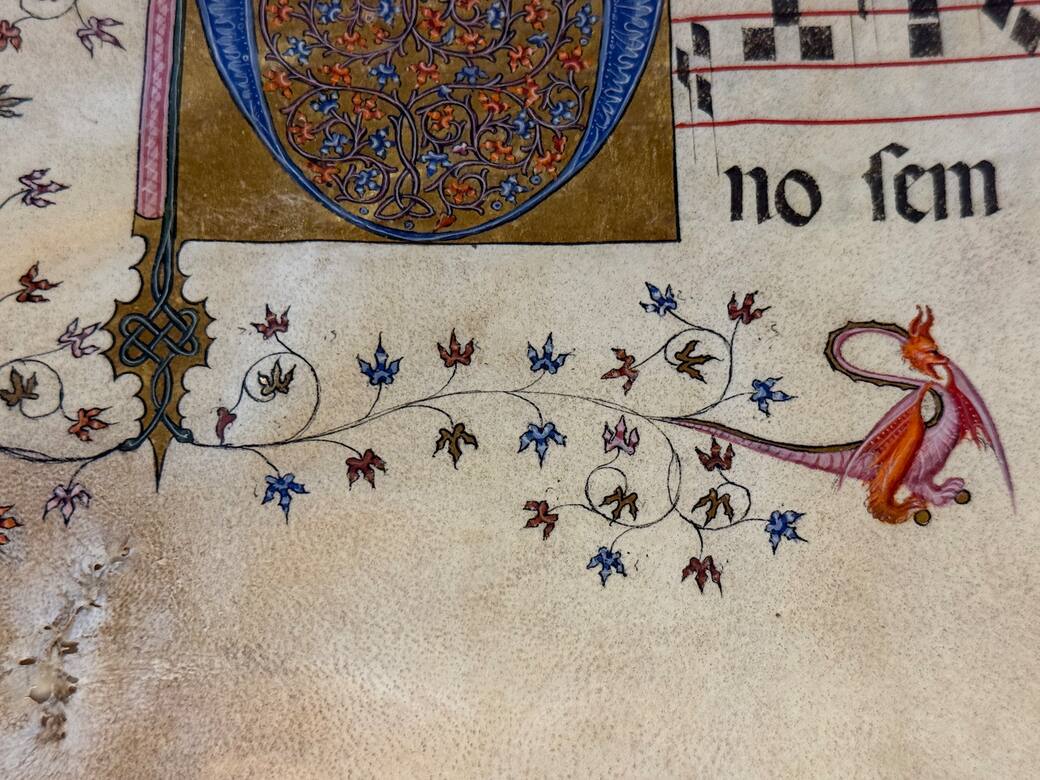 no ſem